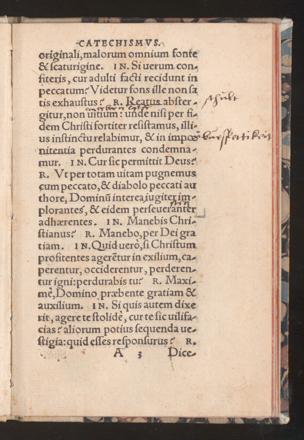 CATECHISMVS.
originali, malorum omnium fonte
& scaturigine. IN. Si uerum con-
fiteris, cur adulti facti recidunt in
peccatum? Videtur fons ille non sa
tis exhaustus? R. Reatus abster-
gitur, non uitium: unde nisi per fi
dem Christi fortiter resistamus, illi-
us instinctu relabimur, & in impœ
nitentia perdurantes condemna-
mur. IN. Cur sic permittit Deus?
R. Vt per totam uitam pugnemus
cum peccato, & diabolo peccati au
thore, Dominū interea iugiter im-
plorantes, & eidem perseueranter
adhærentes. IN. Manebis Chri-
stianus? R. Manebo, per Dei gra
tiam. IN. Quid uerò, si Christum
profitentes agerētur in exilium, ca-
perentur, occiderentur, perderen-
tur igni: perdurabis tu? R. Maxi-
mè, Domino præbente gratiam &
auxilium. IN. Si quis autem dixe
rit, agere te stolidè, cur te sic uilifa-
cias? aliorum potius sequenda ue-
stigia: quid esses responsurus? R.
A 3 Dice-